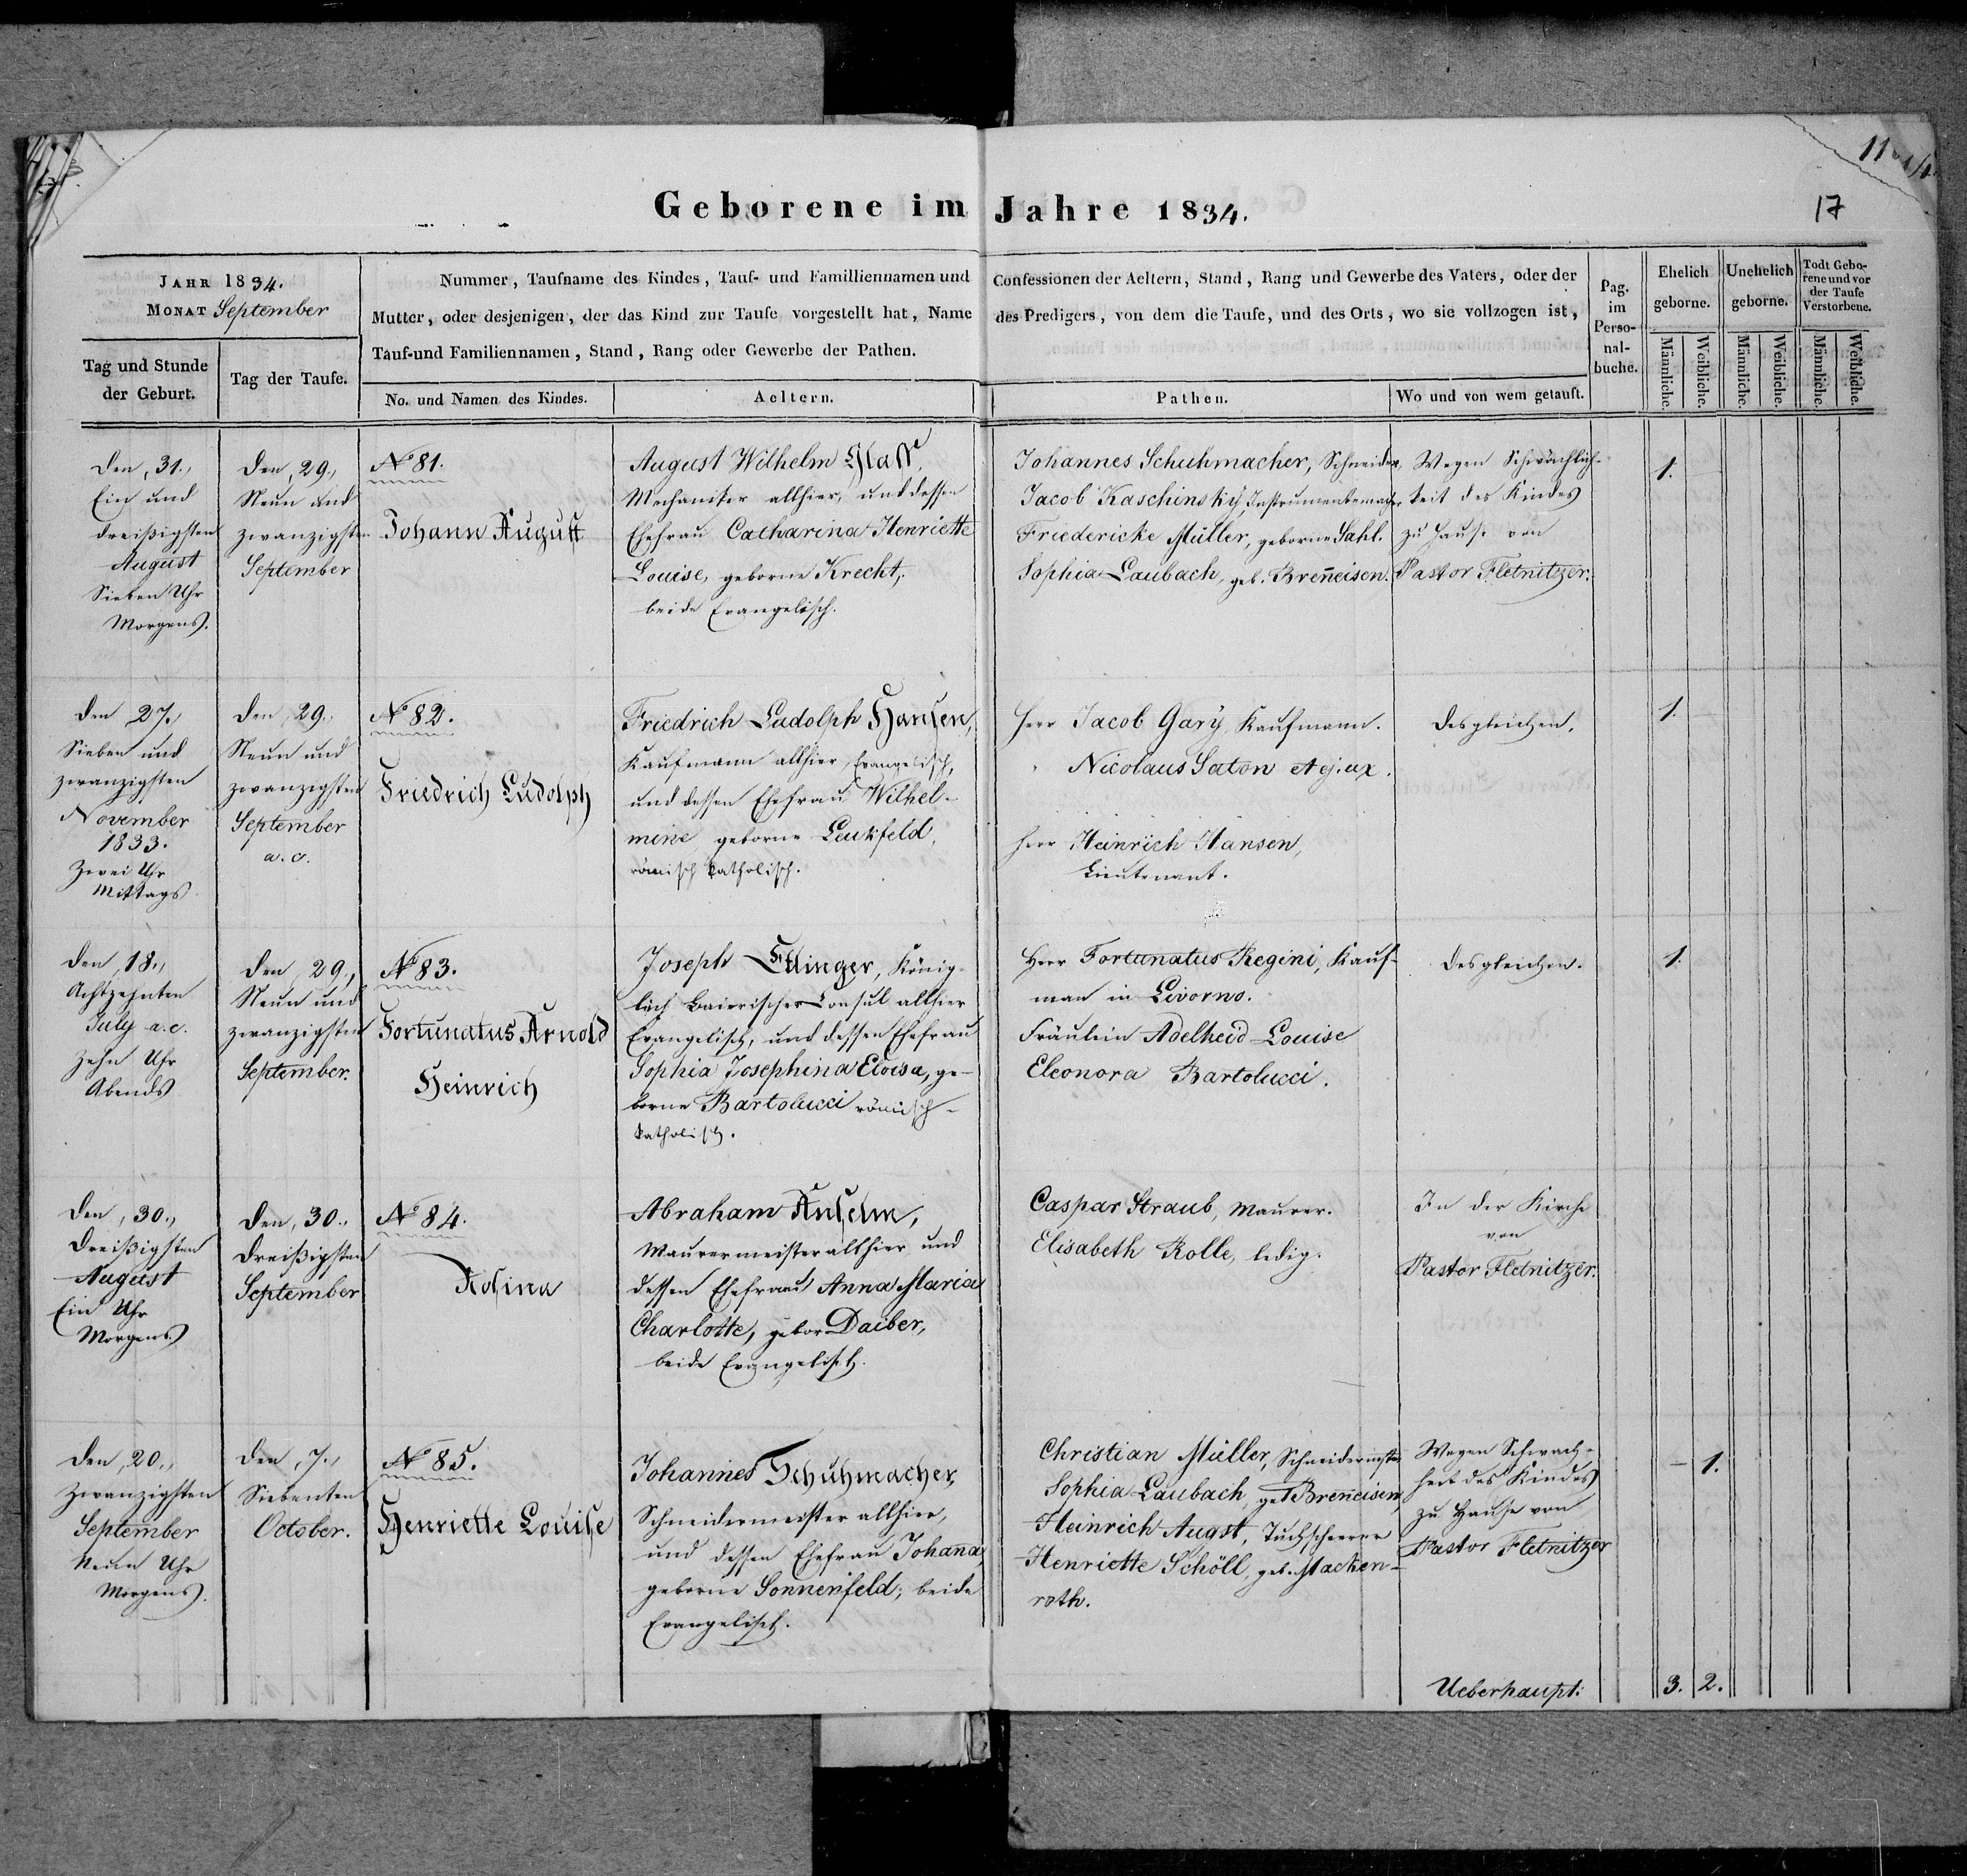 Geborene im Jahre 1834.
17
JAHR 1834.
MONAT September
Tag und Stunde der Geburt.
Tag der Taufe.
Nummer, Taufname des Kindes, Tauf- und Familliennamen und
Mutter, oder desjenigen, der das Kind zur Taufe vorgestellt hat, Name
Tauf-und Familiennamen, Stand, Rang oder Gewerbe der Pathen.
No. und Namen des Kindes.
Aeltern.
Confessionen der Aeltern, Stand, Rang und Gewerbe des Vaters, oder der
des Predigers, von dem die Taufe, und des Orts, wo sie vollzogen ist,
Pathen.
Wo und von wem getauft.
Pag.
im
Perso-
nal-
buche.
Ehelich
geborne.
Unehelich
geborne.
Todt Gebo-
rene und vor
der Taufe
Verstorbene.
Männliche.
Weibliche.
Männliche.
Weibliche.
Männliche.
Weibliche.
Den 31.,
Ein und
dreißigsten
August
Sieben Uhr
Morgens.
Den 29.,
Neun und
zwanzigsten
September
No 81.
Johann August
August Wilhelm Glass,
Mechaniker allhier, und dessen
Ehefrau Catharina Henriette
Louise, geborne Krecht,
beide Evangelisch.
Johannes Schuhmacher, Schneider,
Jacob Kaschinsky, Instrumentenmacher
Friedericke Müller, geborne Sahl.
Sophia Laubach, geb. Breneisen.
Wegen Schwächlich-
keit des Kindes
zu Hause von
Pastor Fletnitzer.
1.
Den 27.,
Sieben und
zwanzigsten
November
1833.
Zwei Uhr
Mittags
Den 29.,
Neun und
zwanzigsten
September
a. c.
No 82.
Friedrich Ludolph
Friedrich Ludolph Hansen,
Kaufmann allhier, Evangelisch,
und dessen Ehefrau Wilhel-
mine geborne Leukfeld,
römisch katholisch.
Herr Jacob Gary, Kaufmann.
" Nicolaus Saton et ej. ux.
Herr Heinrich Hansen,
Lieutenant.
desgleichen.
1.
Den 18.,
Achtzehnten
July a. c.
Zehn Uhr
Abends
Den 29.,
Neun und
zwanzigsten
September.
No 83.
Fortunatus Arnold
Heinrich
Joseph Ettlinger, König-
lich Baierischer Consul allhier
Evangelisch, und dessen Ehefrau
Sophia Josephina Eloisa, ge-
borne Bartolucci römisch-
katholisch.
Herr Fortunatus Regini, Kauf-
man in Livorno.
Fräulein Adelheid Louise
Eleonora Bartolucci.
desgleichen.
1.
Den 30.,
Dreißigsten
August
Ein Uhr
Morgens
Den 30.,
Dreißigsten
September
No 84.
Rosina
Abraham Anselm,
Maurermeister allhier und
dessen Ehefrau Anna Maria
Charlotte, gebor. Daiber,
beide Evangelisch.
Caspar Straub, Maurer.
Elisabeth Rolle, ledig.
In der Kirche
von
Pastor Fletnitzer.
Den 20.,
Zwanzigsten
September
Neun Uhr
Morgens.
Den 7.,
Siebenten
October.
No 85.
Henriette Louise
Johannes Schuhmacher,
Schneidermeister allhier,
und dessen Ehefrau Johana
geborne Sonnenfeld, beide
Evangelisch.
Christian Müller, Schneidermstr
Sophia Laubach, geb. Breneisen,
Heinrich Augst, Tuchscheerer
Henriette Schöll, geb. Macken-
roth.
Wegen Schwach-
heit des Kindes
zu Hause von
Pastor Fletnitzer
1.
Ueberhaupt:
3. 2.